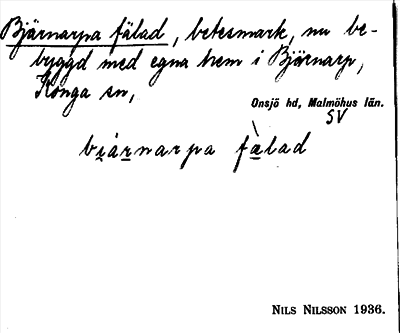 Bjärnarpa fälad, betesmark, nu be-
byggd med egna hem i Bjärnarp,
Konga sn,
Onsjö hd, Malmöhus län.
SV
bi̯ärnarpa fàlad
NILS NILSSON 1936.